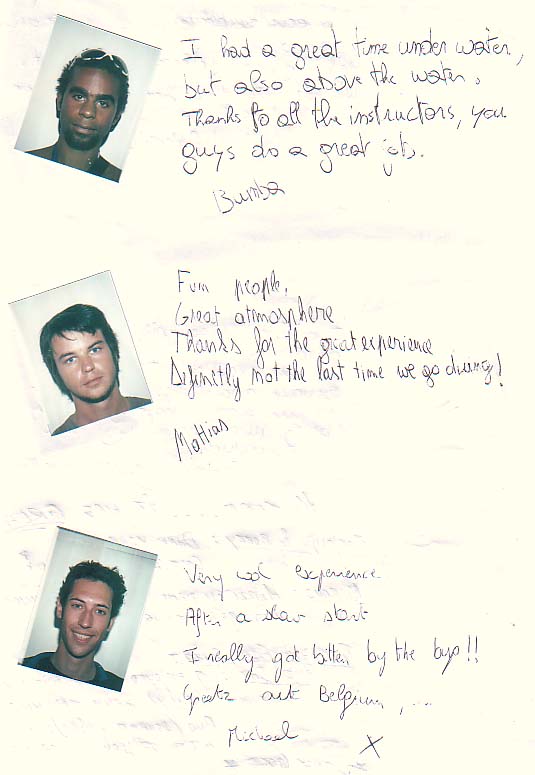 I had a great time under water,
but also above the water.
Thanks to all the instructors, you
guys do a great job.
Bumba
Fun people,
Great atmosphere
Thanks for the great experience
Definetly not the last time we go diving!
Mattias
Very cool experience
After a slow start
I really got bitten by the bup!!
Greetz out Belgium, ...
Michael X